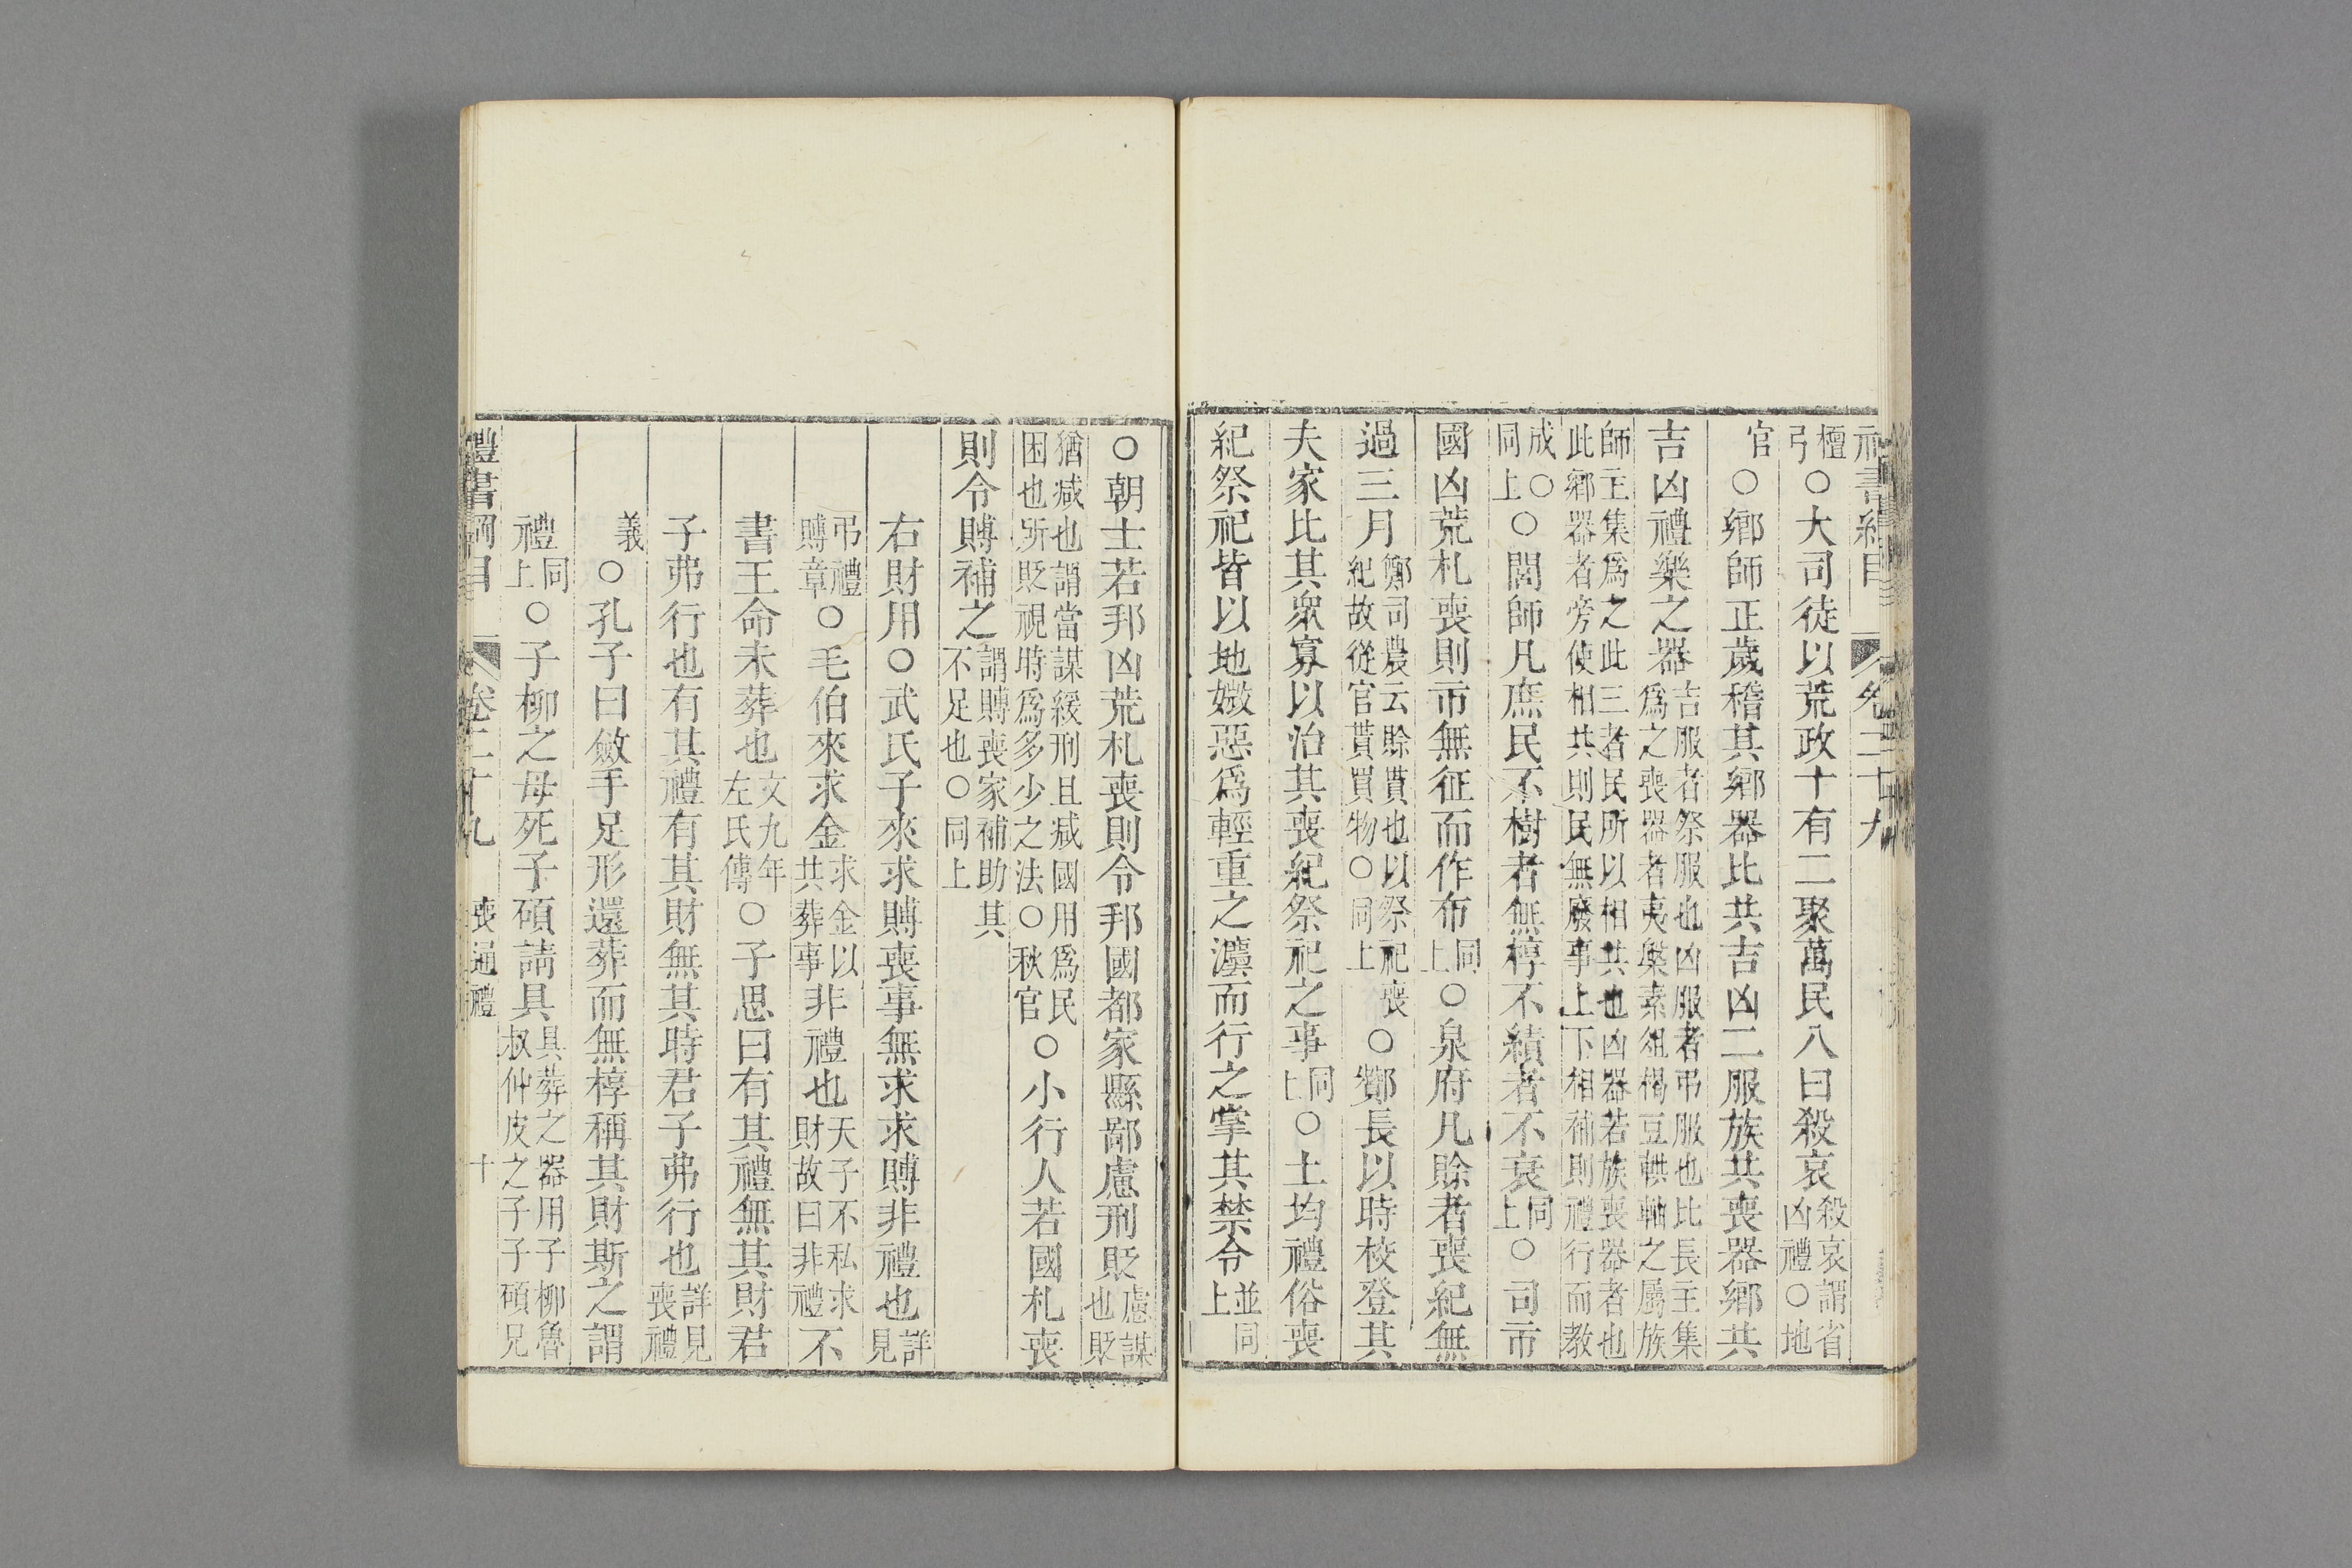 禮書綱目 卷二十九
檀弓○大司徒以荒政十有二聚萬民八曰殺哀殺哀謂省凶禮○地
官○鄉師正歲稽其鄉器比共吉凶二服族共喪器鄉共
吉凶禮樂之器吉服者祭服也凶服者弔服也比長主集爲之喪器者夷槃素俎楬豆輁軸之屬族
師主集爲之此三者民所以相共也凶器若族喪器者也此鄉器者旁使相共則民無廢事上下相補則禮行而教
成○同上○閭師凡庶民不樹者無椁不績者不衰同上○司市
國凶荒札喪則市無征而作布同上○泉府凡賒者喪紀無
過三月鄭司農云賒貰也以祭祀喪紀故從官貰買物○同上○酇長以時校登其
夫家比其衆寡以治其喪紀祭祀之事同上○土均禮俗喪
紀祭祀皆以地媺惡爲輕重之灋而行之掌其禁令並同上
○朝士若邦凶荒札喪則令邦國都家縣鄙慮刑貶慮謀也貶
猶减也謂當謀緩刑且减國用爲民困也所貶視時爲多少之法○秋官○小行人若國札喪
則令賻補之謂賻喪家補助其不足也○同上
右財用○武氏子來求賻喪事無求求賻非禮也詳見
弔禮賻章○毛伯來求金求金以共葬事非禮也天子不私求財故曰非禮不
書王命未葬也文九年左氏傳○子思曰有其禮無其財君
子弗行也有其禮有其財無其時君子弗行也詳見喪禮
義○孔子曰斂手足形還葬而無椁稱其財斯之謂
禮同上○子柳之母死子碩請具具葬之器用子柳魯叔仲皮之子子碩兄
禮書綱目 卷二十九 喪通禮 十